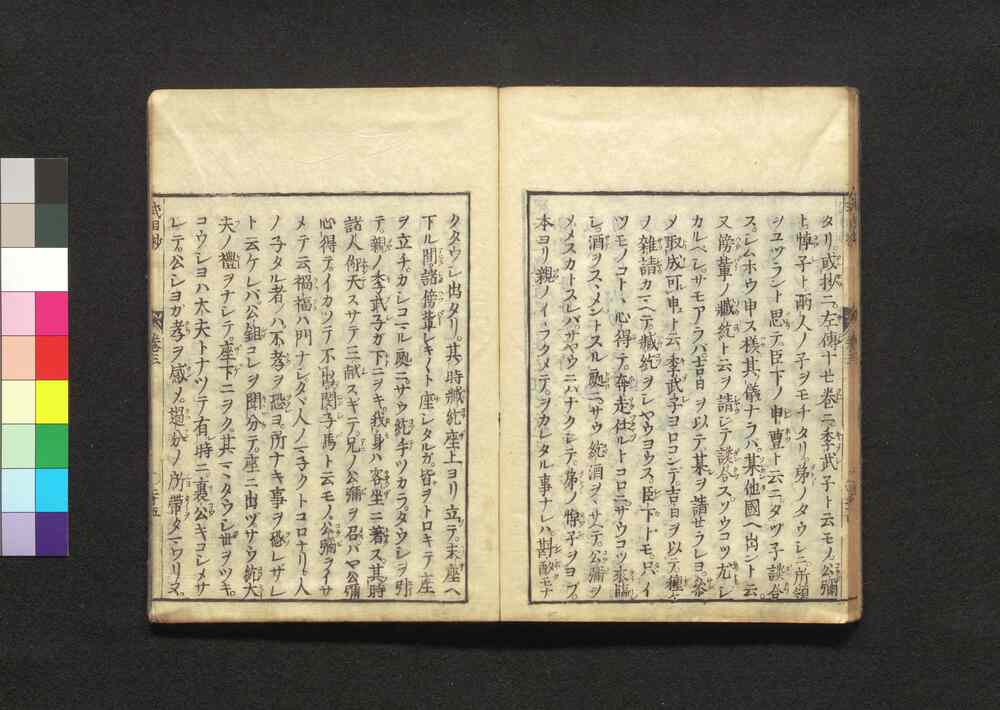 タリ。或抄ニ、左傳十七巻ニ、季武子ト云モノ、公彌
ト、悼子ト、兩人ノ子ヲモチタリ。弟ノタウシニ、所領
ヲユツラント思テ、臣下ノ申豊ト云ニ、タツ子談合
ス。シムホウ申ス様、其儀ナラハ、某他國ヘ出ント云。
又傍輩ノ臧紇ト云ヲ請シテ談合ス。ゾウコツ尤シ
カルベシ。サモアラバ、吉日ヲ以テ某ヲ請セラレヨ。参
メ取成可申ト云。季武子ヨロコンデ、吉日ヲ以テ種々
ノ雑請カマヘテ、臧紇ヲシヤウヨウス。臣下トモ、只イ
ツモノコト、心得テ、奔走仕ルトコロニ、サウコツ来臨
シ、酒ヲスヽメントスル處ニ、サウ紇酒ヲヽサヘテ、公彌ヲ
メメスカトスレバ、サヤウニハナクシテ、弟ノ悼子ヲヨブ。
本ヨリ親ノイヽフクメテ、ヲカレタル事ナレハ、斟酌モナ
クタウシ出タリ。其時臧紇座上ヨリ立テ、末座ヘ
下ル間、諸傍輩レキ〳〵ト座シタルガ、皆ヲトロキテ座
ヲ立チ、カシコマル處ニ、サウ紇手ツカラ、タウシヲ引
テ、親ノ季武子ガ下ニヲキ、我身ハ客坐ニ著ス。其時
諸人仰天スサテ三献スギテ、兄ノ公彌ヲ召バヤ公彌
心得テ、イカツテ不出。閔子馬ト云モノ、公彌ヲイサ
メテ云、禍福ハ門ナシ、タヾ人ノマ子クトコロナリト、人
ノ子タル者ノハ、不孝ヲ恐ヨ。所ナキ事ヲ恐レザレ
ト云ケレバ、公鉏コレヲ聞分テ、座ニ出ヅ、サウ紇大
夫ノ禮ヲナシテ、座下ニヲク。其マヽタウシ世ヲツギ。
コウシヨハ大夫トナツテ有シ時ニ、襄公キコシメサ
レテ、公シヨカ孝ヲ感メ、超分ノ所帶タマワリヌ。
式目抄
巻三